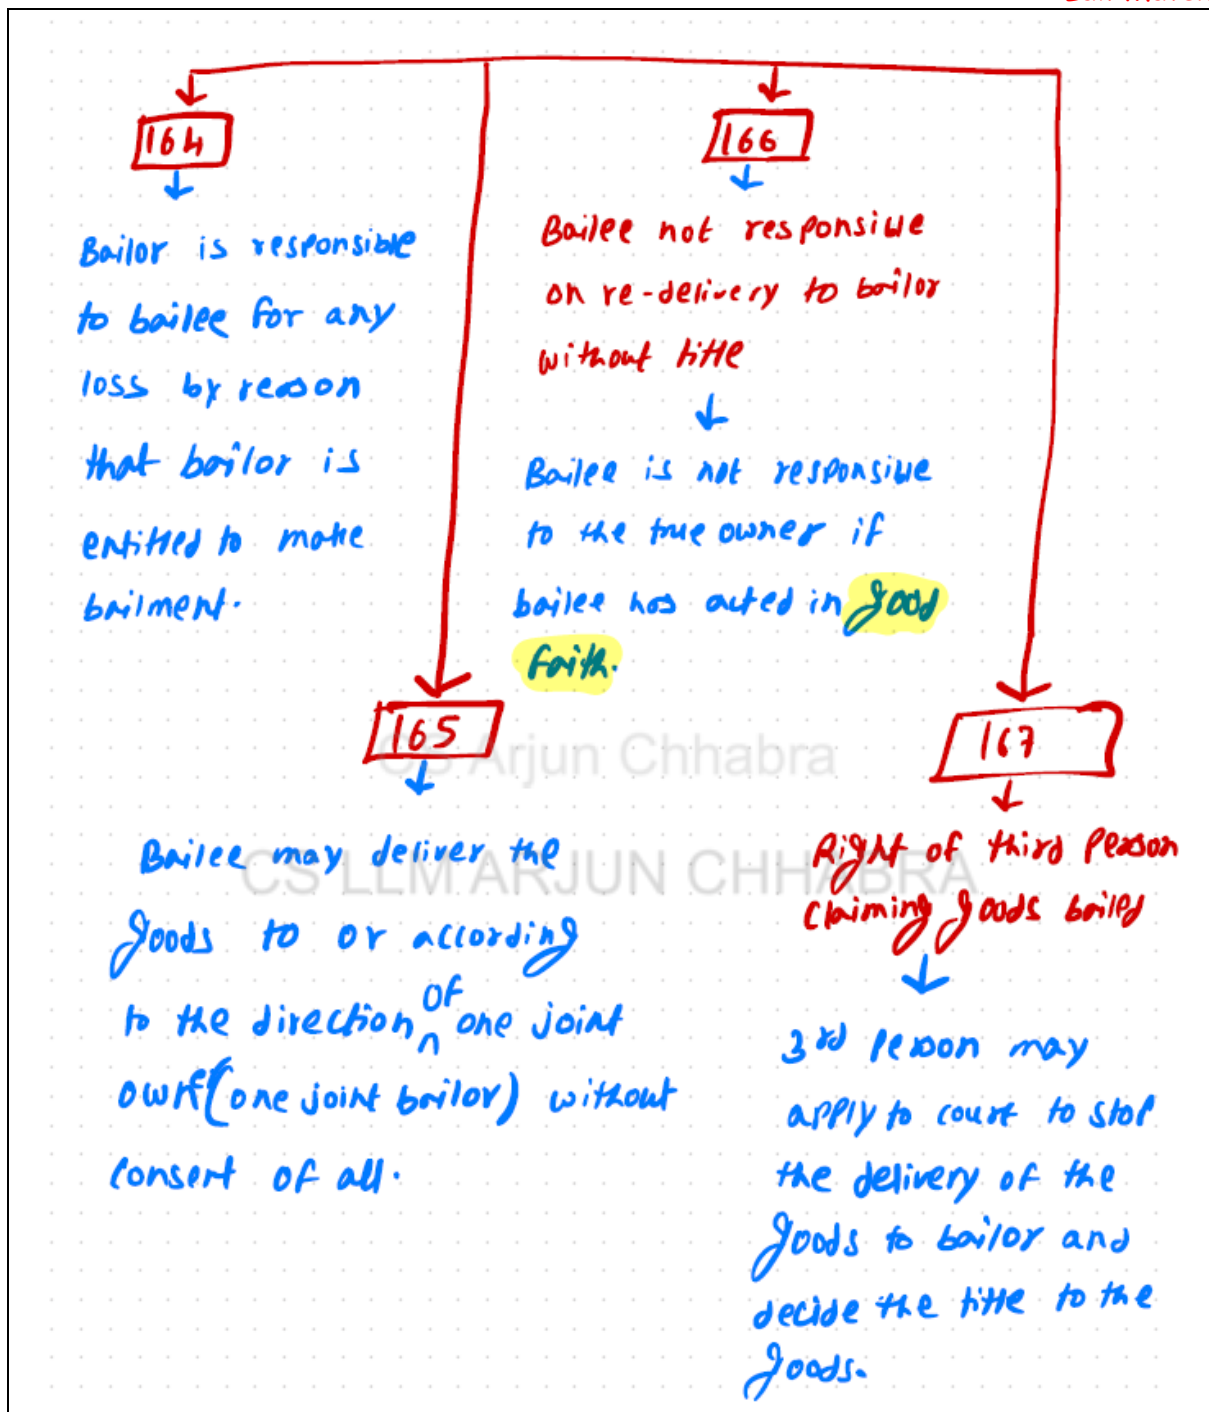 164
Bailor is responsible
to bailee for any
loss by reason
that bailor is
entitled to make
bailment.
166
Bailee not responsible
on re-delivery to bailor
without title
Bailee is not responsible
to the true owner if
bailee has acted in good
faith.
165
CS Arjun Chhabra
Bailee may deliver the
CS LLM ARJUN CHHABRA
goods to or according
to the direction of one joint
owner (one joint bailor) without
consent of all.
167
Right of third Person
claiming goods bailed
3rd person may
apply to court to stop
the delivery of the
goods to bailor and
decide the title to the
goods.